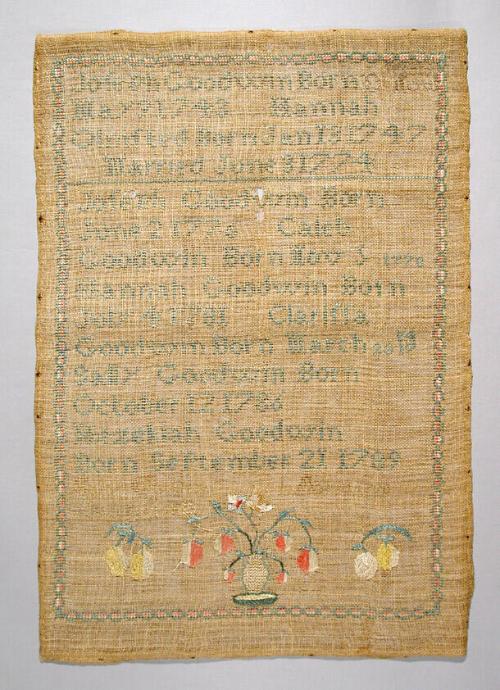 Goodwin Born
1743 Hannah
Olmsted Born Jan 18 1747
Married June 9 1774
Goodwin Born
June 2 Caleb
Goodwin Born Nov
Hannah Goodwin Born
July 4 1781 Clarissa
Goodwin Born March
Sally Goodwin Born
October 12 1786
Hezekiah Goodwin
Born September 21 1789